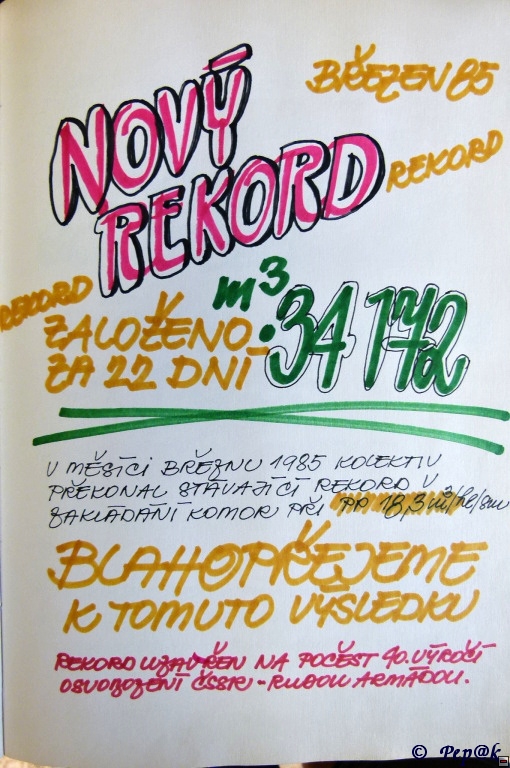 BŘEZEN 85
NOVÝ
REKORD
REKORD
REKORD
m³
ZALOŽENO :
ZA 22 DNÍ
34 172
V MĚSÍCI BŘEZNU 1985 KOLEKTIV
PŘEKONAL STÁVAJÍCÍ REKORD V
ZAKLÁDÁNÍ KOMOR PŘI PP 18,3 m³/hl/sm
BLAHOPŘEJEME
K TOMUTO VÝSLEDKU
REKORD UZAVŘEN NA POČEST 40. VÝROČÍ
OSVOBOZENÍ ČSSR - RUDOU ARMÁDOU.
© Pep@k